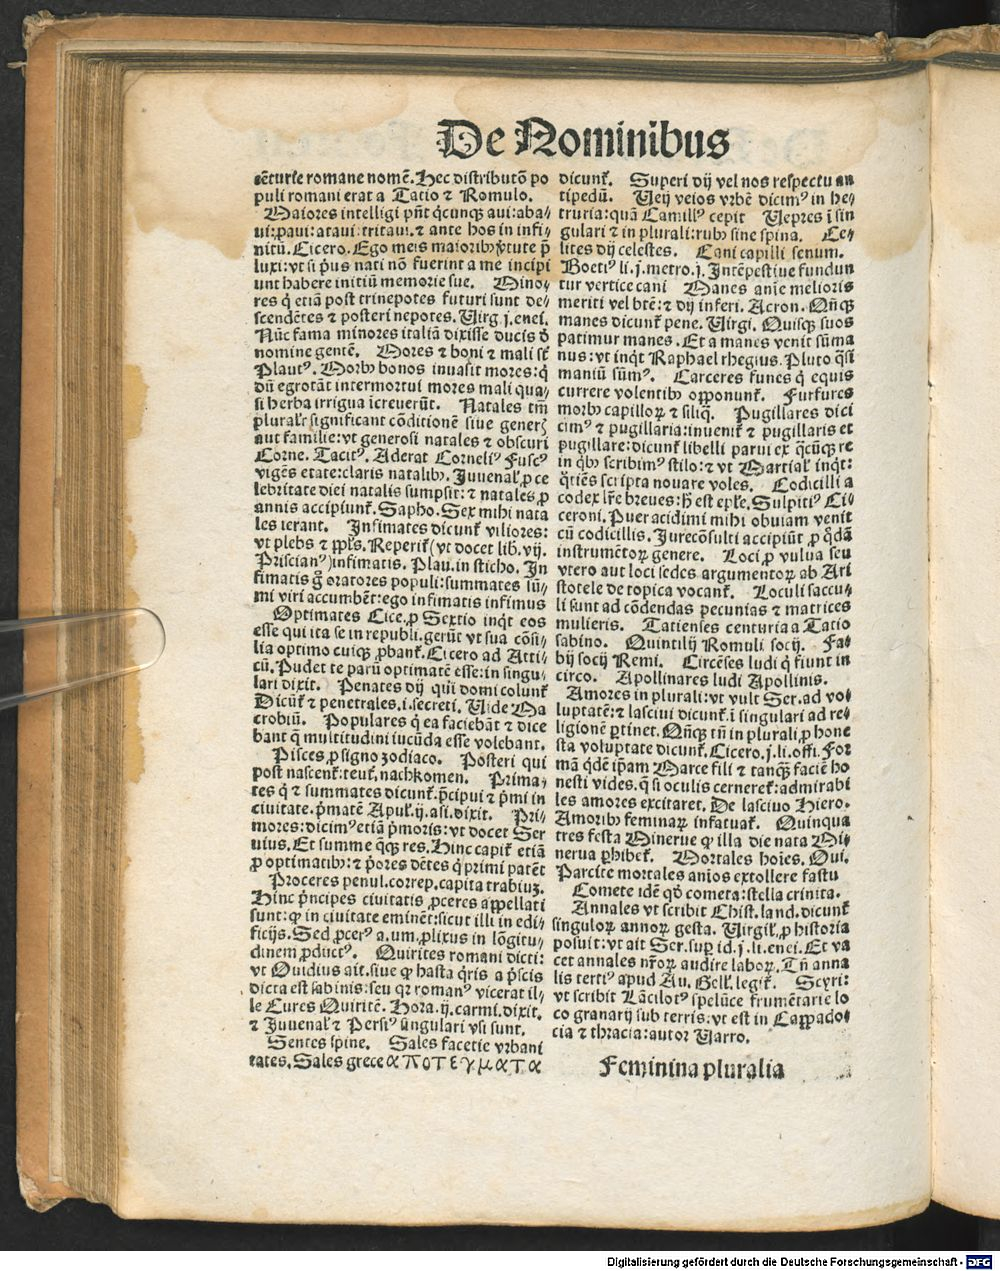 De Nominibus
cẽturie romane nomẽ. Hec distributõ po
puli romani erat a Tatio ⁊ Romulo.
Maiores intelligi pñt q̇cunqꝫ aui: aba⸗
ui: ꝓaui: ataui: tritaui. ⁊ ante hos in infi⸗
nitũ. Cicero. Ego meis maioribꝰ v̓tute p̃
luxi: vt si pͥus nati nõ fuerint a me incipi
unt habere initiũ memorie sue. Mino⸗
res q̇ etiã post trinepotes futuri sunt de⸗
scendẽtes ⁊ posteri nepotes. Virg. j. enei.
Nũc fama minores italiã dixisse ducis d̓
nomine gentẽ. Mores ⁊ boni ⁊ mali st̃
Plautꝰ. Morbꝰ bonos inuasit mores: q̇
dũ egrotãt intermortui mores mali qua⸗
si herba irrigua ĩcreuerũt. Natales tm̃
pluralr̓ significant cõditionẽ siue generꝭ
aut familie: vt generosi natales ⁊ obscuri
Corne. Tacitꝰ. Aderat Corneliꝰ Fuscꝰ
vigẽs etate: claris natalibꝰ. Juuenal̓ ꝓ ce
lebritate diei natalis sumpsit: ⁊ natales ꝓ
annis accipiunt̃. Sapho. Sex mihi nata
les ierant. Infimates dicunt̃ viliores:
vt plebs ⁊ ppl̓s. Reperit̃ (vt docet lib. vij.
Priscianꝰ) infimatis. Plau. in sticho. In
fimatis g̃ oratores populi: summates sũ⸗
mi viri accumbẽt: ego infimatis infimus
Optimates Cice. ꝓ Sextio inqt̃ eos
esse qui ita se in republi. gerũt vt sua cõsi⸗
lia optimo cuiqꝫ ꝓbant̃. Cicero ad Atti⸗
cũ. Pudet te parũ optimatẽ esse: in singu⸗
lari dixit. Penates dij qui domi colunt̃
Dicũt̃ ⁊ penetrales. i. secreti. Vide Ma
crobiũ. Populares q̇ ea faciebãt ⁊ dice
bãnt q̃ multitudini iucũda esse volebant.
Pisces, ꝓ signo zodiaco. Posteri qui
post nascent̃: teut̃. nachkomen. Prima⸗
tes q̇ ⁊ summates dicunt̃. pͥcipui ⁊ pͥmi in
ciuitate. pͥmatẽ Apul̓. ij. asi. dixit. Pri⸗
mores: dicimꝰ etiã pͥmoris: vt docet Ser
uius. Et summe q̃qꝫ res. Hinc capit̃ etiã
ꝓ optimatibꝰ: ⁊ pͥores dẽtes q̇ primi patẽt
Proceres penul. correp. capita trabiuꝫ.
Hinc pͥncipes ciuitatis ꝓceres appellati
sunt: qꝫ in ciuitate eminẽt: sicut illi in edi⸗
ficijs. Sed ꝓcerꝰ a. um. ꝓlixus in lõgitu⸗
dinem ꝓductꝰ. Quirites romani dicti:
vt Ouidius ait. siue qꝫ hasta q̇ris a pͥscis
dicta est sabinis: seu qꝛ romanꝰ vicerat il⸗
le Cures Quiritẽ. Hora. ij. carmi. dixit.
⁊ Juuenal̓ ⁊ Persiꝰ singulari vsi sunt.
Sentes spine. Sales facetie vrbani
tates. Sales grece αποτεγματα
dicunt̃. Superi dij vel nos respectu an
tipedũ. Veij veios vrbẽ dicimꝰ in he⸗
truria: quã Camillꝰ cepit Vepres ĩ sin
gulari ⁊ in plurali: rubꝰ siue spina. Ce⸗
lites dij celestes. Cani capilli senum.
Boetiꝰ li. j. metro. j. Intẽpestiue fundun
tur vertice cani Manes anie melioris
meriti vel btẽ: ⁊ dij inferi. Acron. Qñqꝫ
manes dicunt̃ pene. Virgi. Quisqꝫ suos
patimur manes. Et a manes venit sũma
nus: vt inqt̃ Raphael rhegius. Pluto q̃si
maniũ sũmꝰ. Carceres funes q̇ equis
currere volentibꝰ opponunt̃. Furfures
morbꝰ capilloꝝ ⁊ siliq̃. Pugillares dici
cimꝰ ⁊ pugillaria: inuenit̃ ⁊ pugillaris et
pugillare: dicunt̃ libelli parui ex q̇cũqꝫ re
in q̇bꝰ scribimꝰ stilo: ⁊ vt Martial̓ inqt̃:
q̇tiẽs scripta nouare voles. Codicilli a
codex lr̃e breues: hͦ est epl̓e. Sulpitiꝰ Ci
ceroni. Puer acidimi mihi obuiam venit
cũ codicillis. Jurecõsulti accipiũt ꝓ q̇dã
instrumẽtoꝝ genere. Loci ꝓ vulua seu
vtero aut loci sedes argumentoꝝ ab Ari
stotele de topica vocant̃. Loculi saccu⸗
li sunt ad cõdendas pecunias ⁊ matrices
mulieris. Tatienses centuria a Tatio
sabino. Quintilij Romuli socij. Fa⸗
bij socij Remi. Circẽses ludi q̇ fiunt in
circo. Apollinares ludi Apollinis.
Amores in plurali: vt vult Ser. ad vo⸗
luptatẽ: ⁊ lasciui dicunt̃. ĩ singulari ad re⸗
ligionẽ ꝑtinet. Qñqꝫ tñ in plurali ꝓ hone
sta voluptate dicunt̃. Cicero. j. li. offi. For
mã q̇dẽ ip̃am Marce fili ⁊ tanqꝫ̃ faciẽ ho
nesti vides. q̃ si oculis cerneret̃: admirabi
les amores excitaret. De lasciuo Hiero.
Amoribꝰ feminaꝝ infatuat̃. Quinqua
tres festa Minerue qꝫ illa die nata Mi⸗
nerua ꝑhibet̃. Mortales hoĩes. Oui.
Parcite mortales anĩos extollere fastu
Comete idẽ qd̓ cometa: stella crinita.
Annales vt scribit Chist. land. dicunt̃
singuloꝝ annoꝝ gesta. Virgil̓. ꝓ historia
posuit: vt ait Ser. suꝑ id. j. li. enei. Et va
cet annales nr̃oꝝ audire laboꝝ. Tñ anna
lis tertiꝰ apud Au. Gell̓. legit̃. Scyri:
vt scribit Lãcilotꝰ spelũce frumẽtarie lo
co granarij sub terris: vt est in Cappado⸗
cia ⁊ thracia: autor Varro.
Feminina pluralia
Digitalisierung gefördert durch die Deutsche Forschungsgemeinschaft - DFG